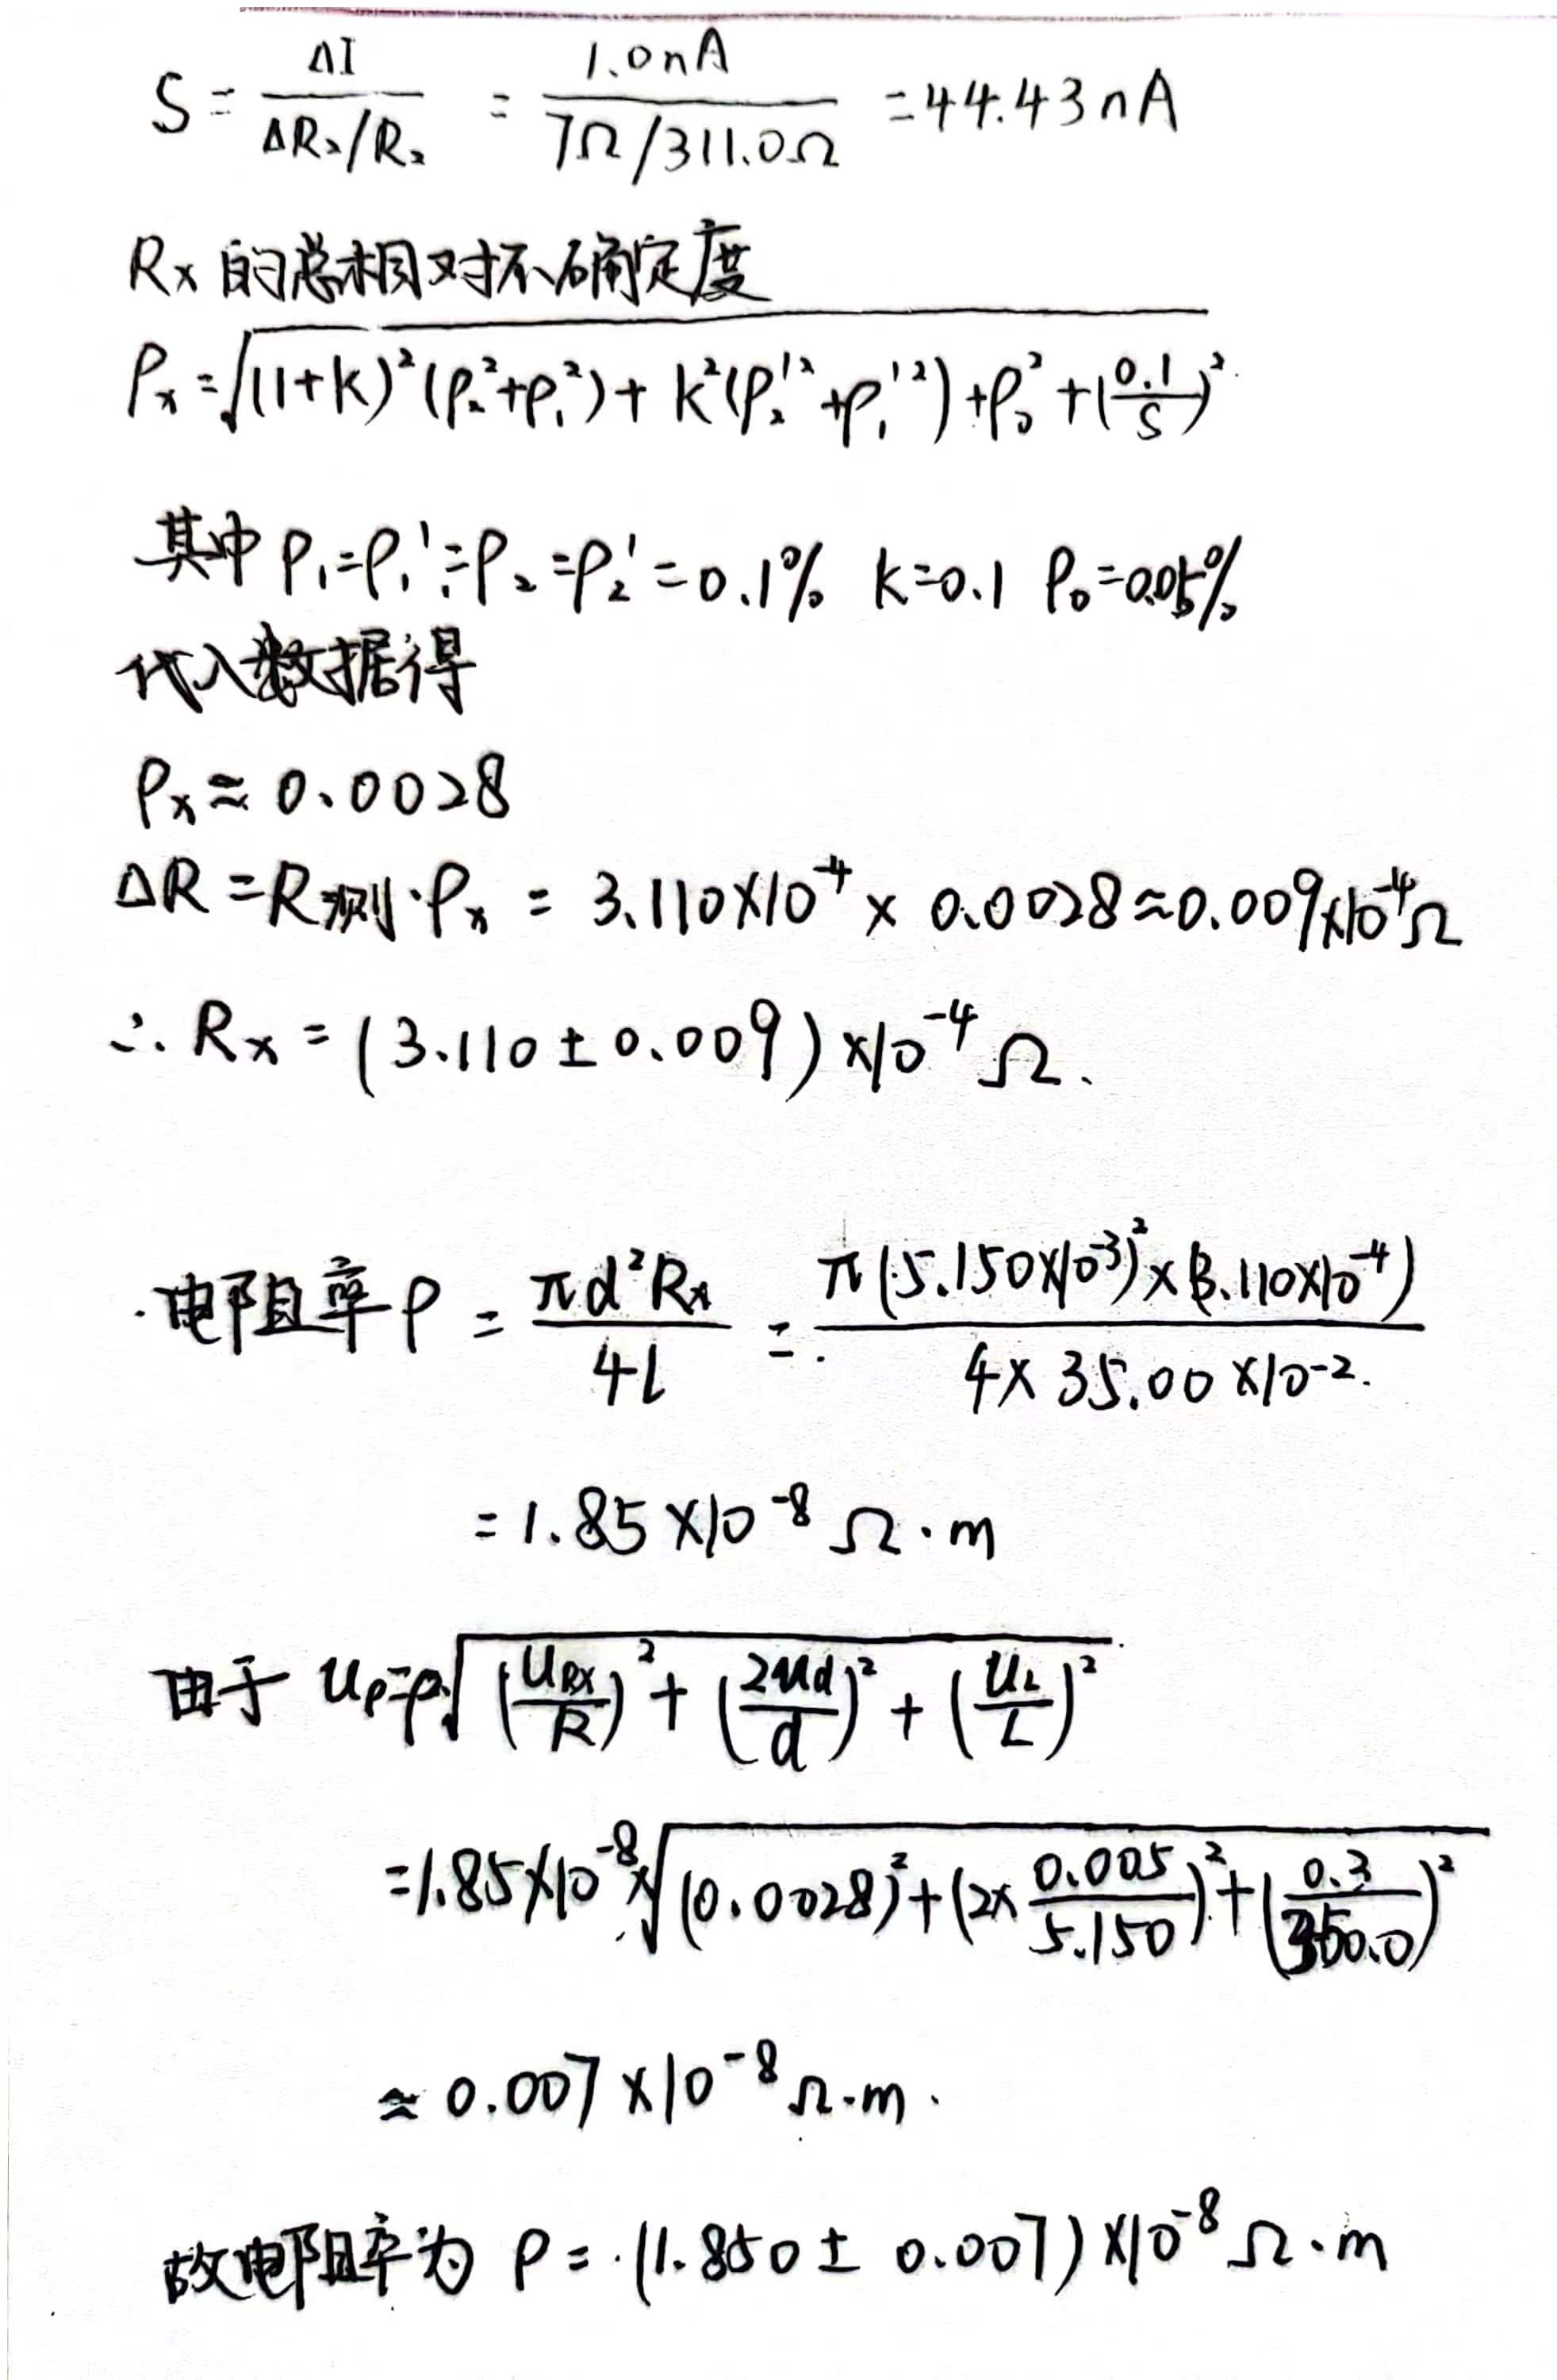 S = ΔI / (ΔR₂/R₂) = 1.0nA / (7Ω/311.0Ω) = 44.43nA
Rx 的总相对不确定度
ρx = √((1+k)²(ρ₂²+ρ₁²) + k²(ρ₂'²+ρ₁'²) + ρ₀² + (0.1/S)²)
其中 ρ₁=ρ₁'=ρ₂=ρ₂'=0.1% k=0.1 ρ₀=0.05%
代入数据得
ρx ≈ 0.0028
ΔR = R测·ρx = 3.110×10⁻⁴ × 0.0028 ≈ 0.009×10⁻⁴Ω
∴ Rx = (3.110 ± 0.009) ×10⁻⁴ Ω.
·电阻率 ρ = πd²Rx / 4l = π(5.150×10⁻³)²×(3.110×10⁻⁴) / 4×35.00×10⁻².
= 1.85×10⁻⁸ Ω·m
由于 uρ=ρ·√((uRx/R)² + (2ud/d)² + (uL/L)²)
=1.85×10⁻⁸×√((0.0028)²+(2×0.005/5.150)²+(0.3/350.0)²)
≈ 0.007×10⁻⁸ Ω·m.
故电阻率为 ρ = (1.850 ± 0.007)×10⁻⁸ Ω·m